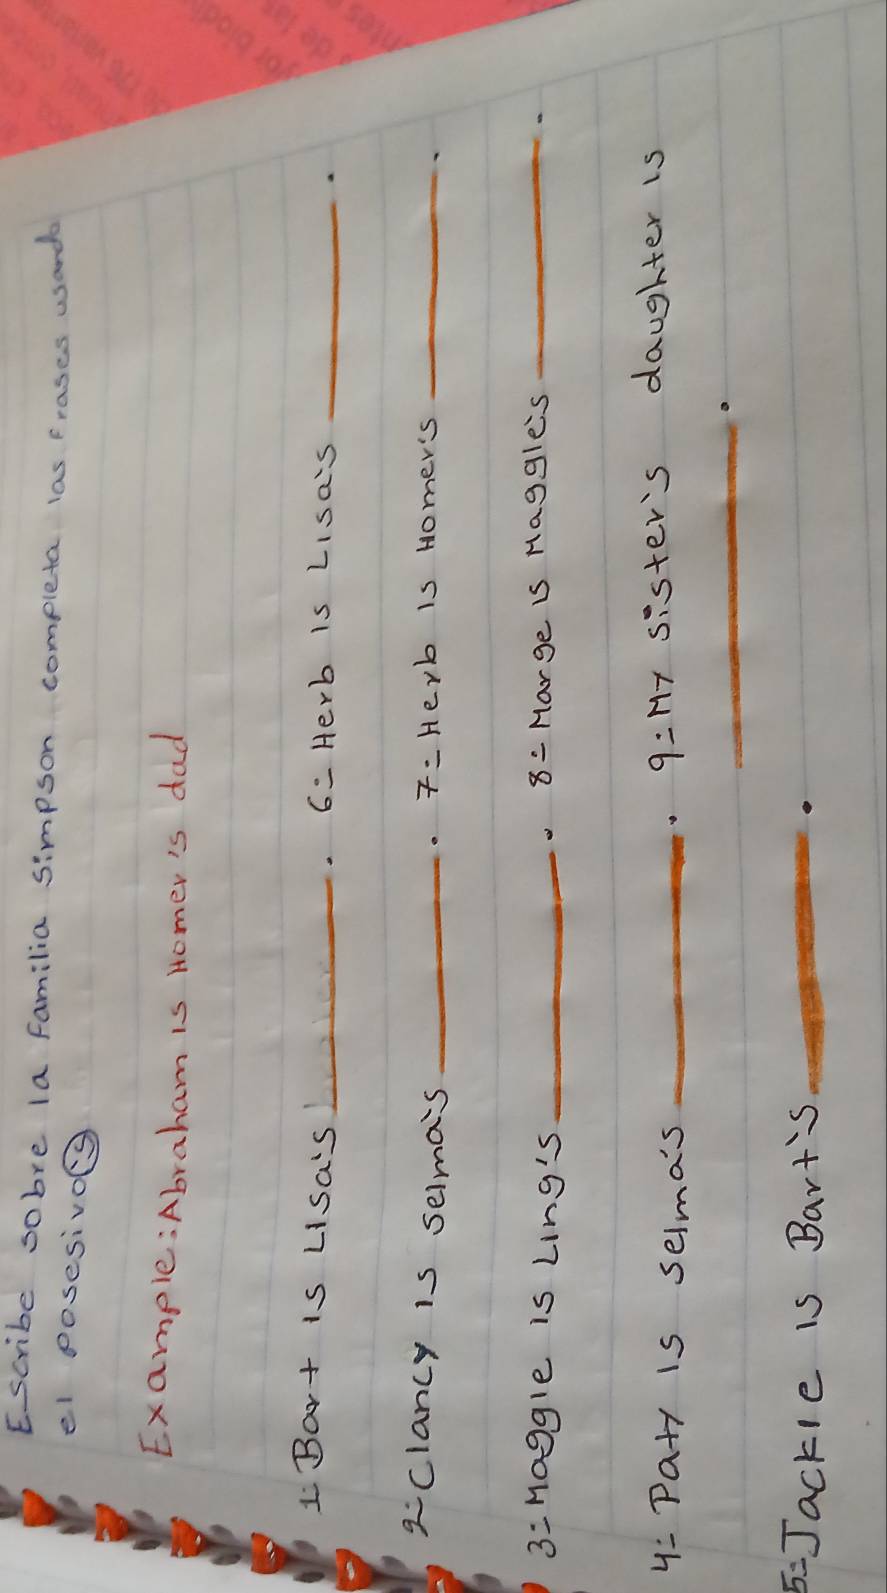 Escribe sobre la Familia Simpson completa las Frases usando
el posesivo ('s)
Example: Abraham is Homer's dad
1- Bart is Lisa's ______. 6- Herb is Lisa's ______.
2- Clancy is selma's ______. 7- Herb is Homer's ______.
3- Maggie is Ling's ______. 8- Marge is Maggie's ______.
4- Paty is selma's ______. 9- My sister's daughter is
______.
5- Jackie is Bart's ______.